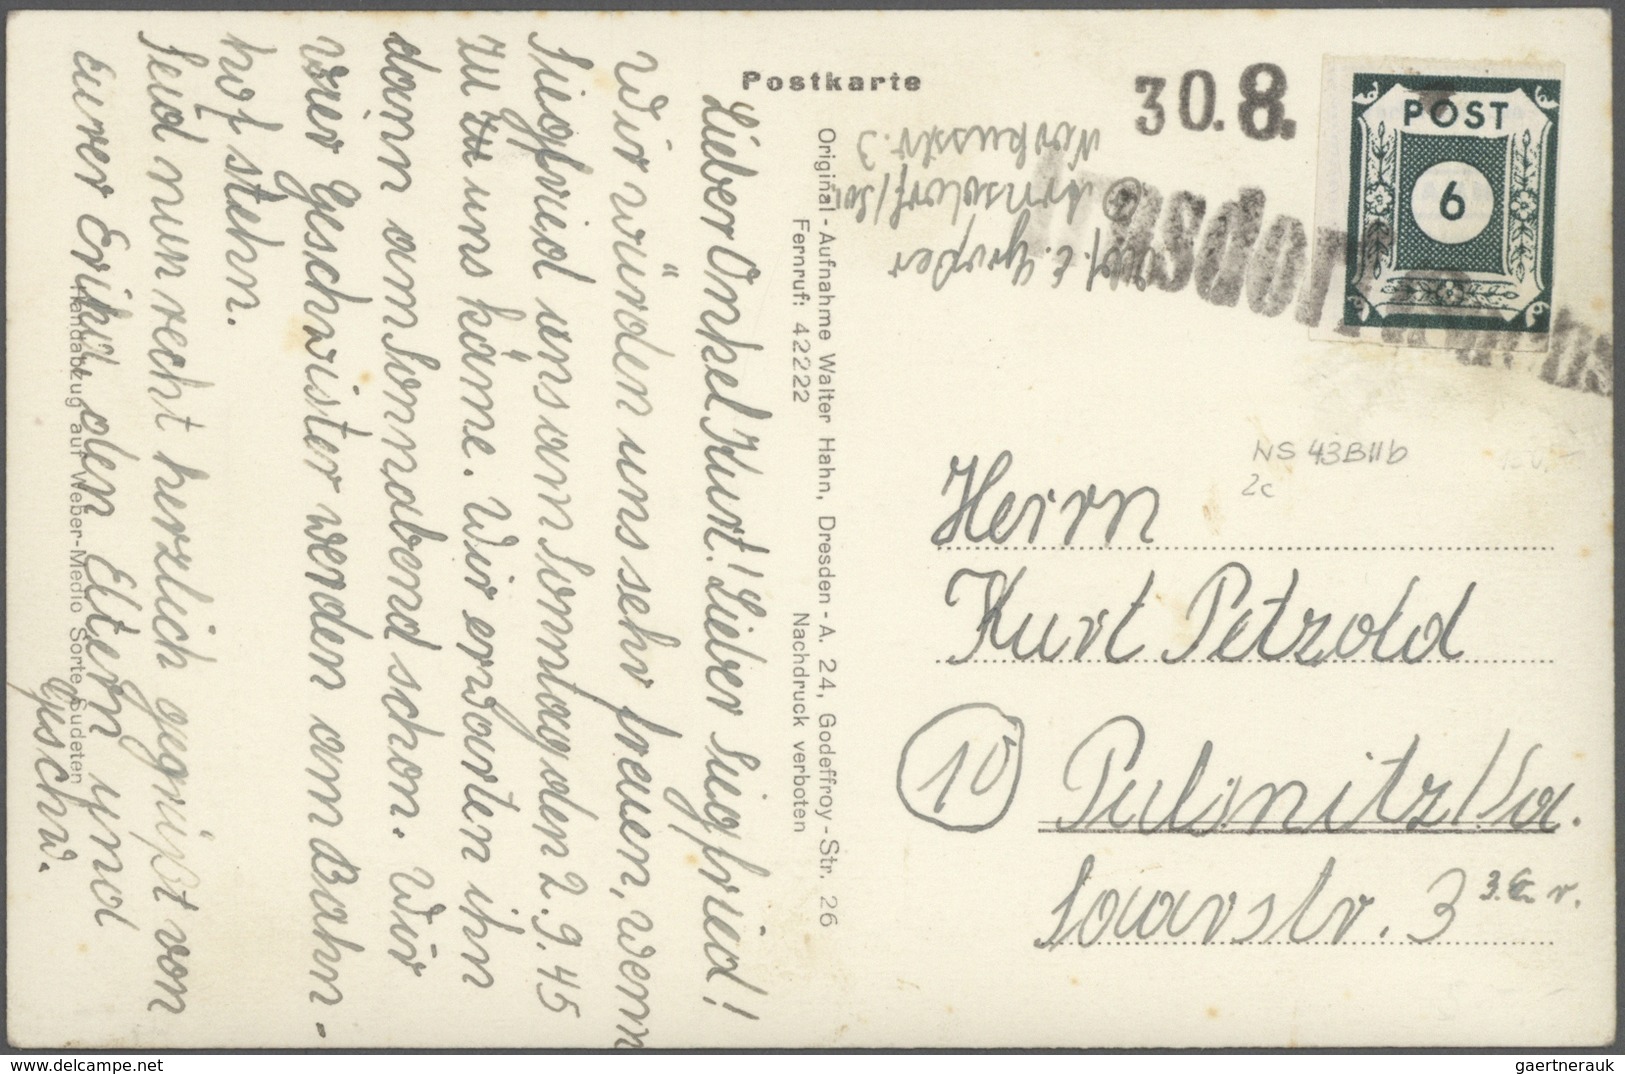 Postkarte
30.8.
POST
6
Arnsdorf (Sachs
Abs. E. Großer
Arnsdorf/Sa.
Markusstr. 3
NS 43BIIb
2c
Herrn
Kurt Petzold
10
Pulsnitz/Sa.
Saarstr. 3
Original-Aufnahme Walter Hahn, Dresden-A. 24, Godeffroy-Str. 26
Fernruf: 42222 Nachdruck verboten
Lieber Onkel Kurt! Lieber Siegfried!
Wir würden uns sehr freuen, wenn
Siegfried uns am Sonntag den 2.9.45
zu uns käme. Wir erwarten ihn
dann am Sonnabend schon. Wir
vier Geschwister werden am Bahn-
hof stehn.
Seid nun recht herzlich gegrüßt von
eurer Erika den Eltern und
Geschw.
Handabzug auf Weber-Medio Sorte Sudeten
gaertnerauk@delcampe.net